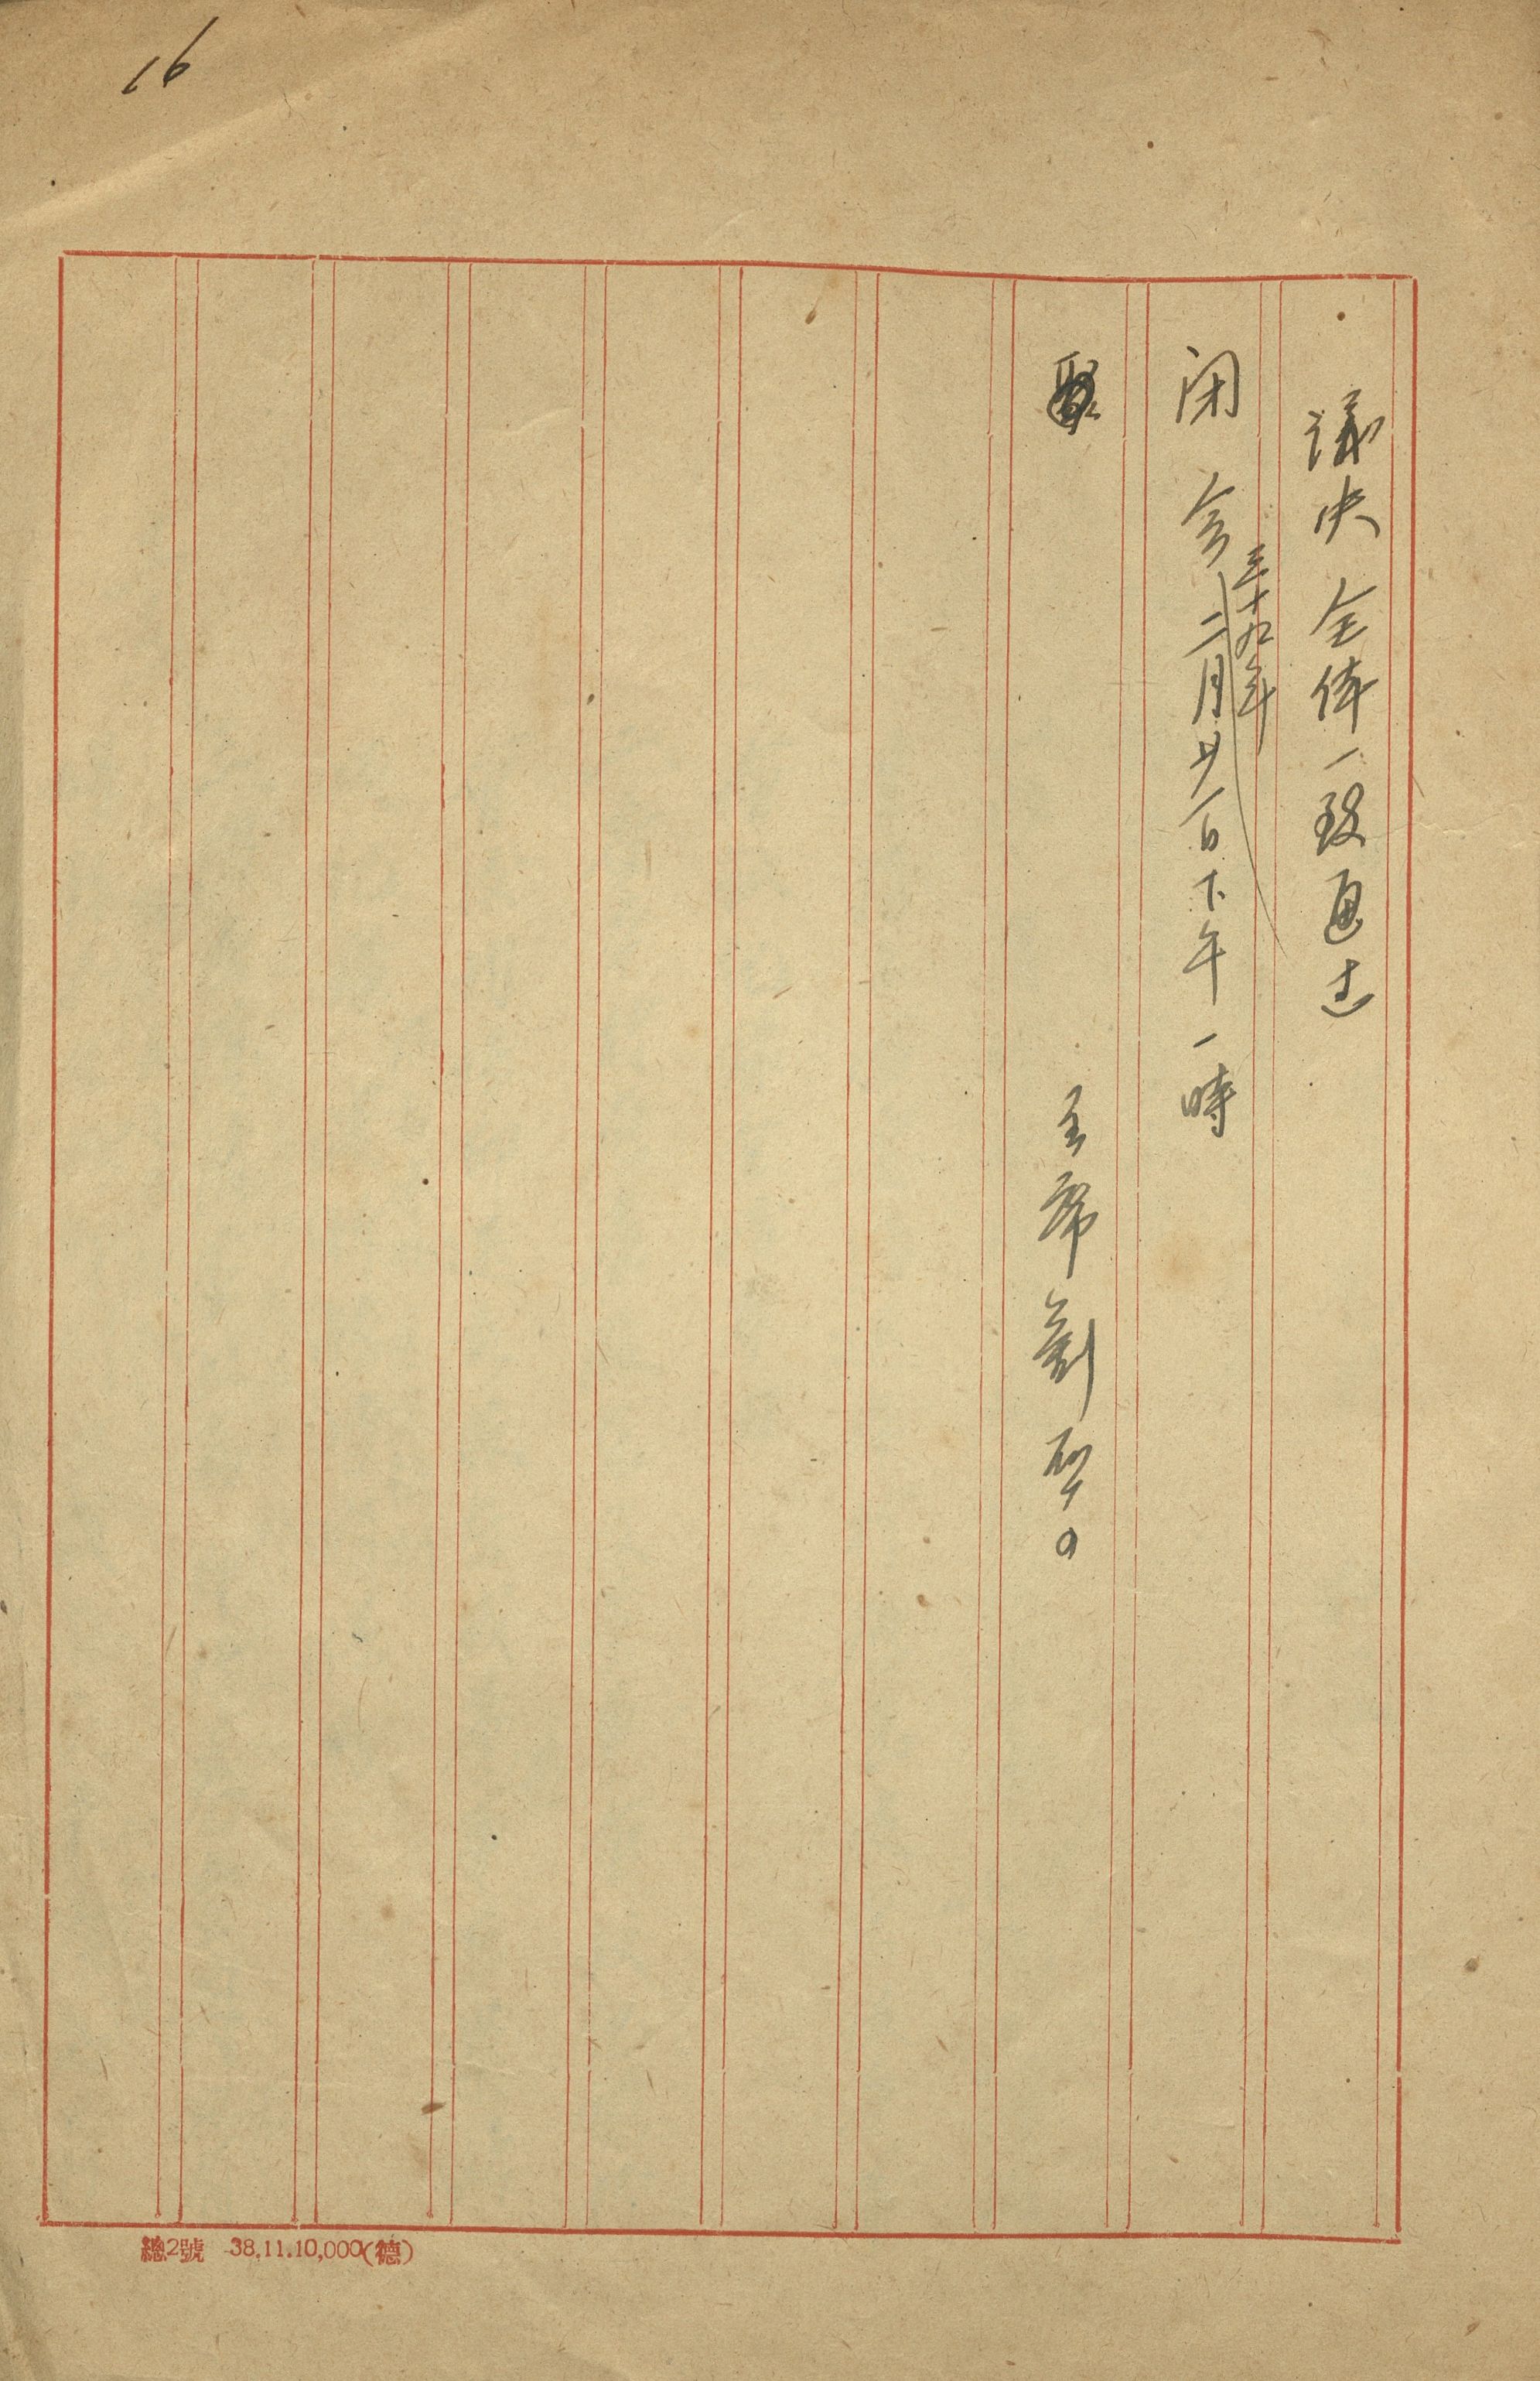 16
議決 全体一致通过
闭会 三十九年二月廿一日下午一時
主席 劉
總2號 38.11.10,000(德)